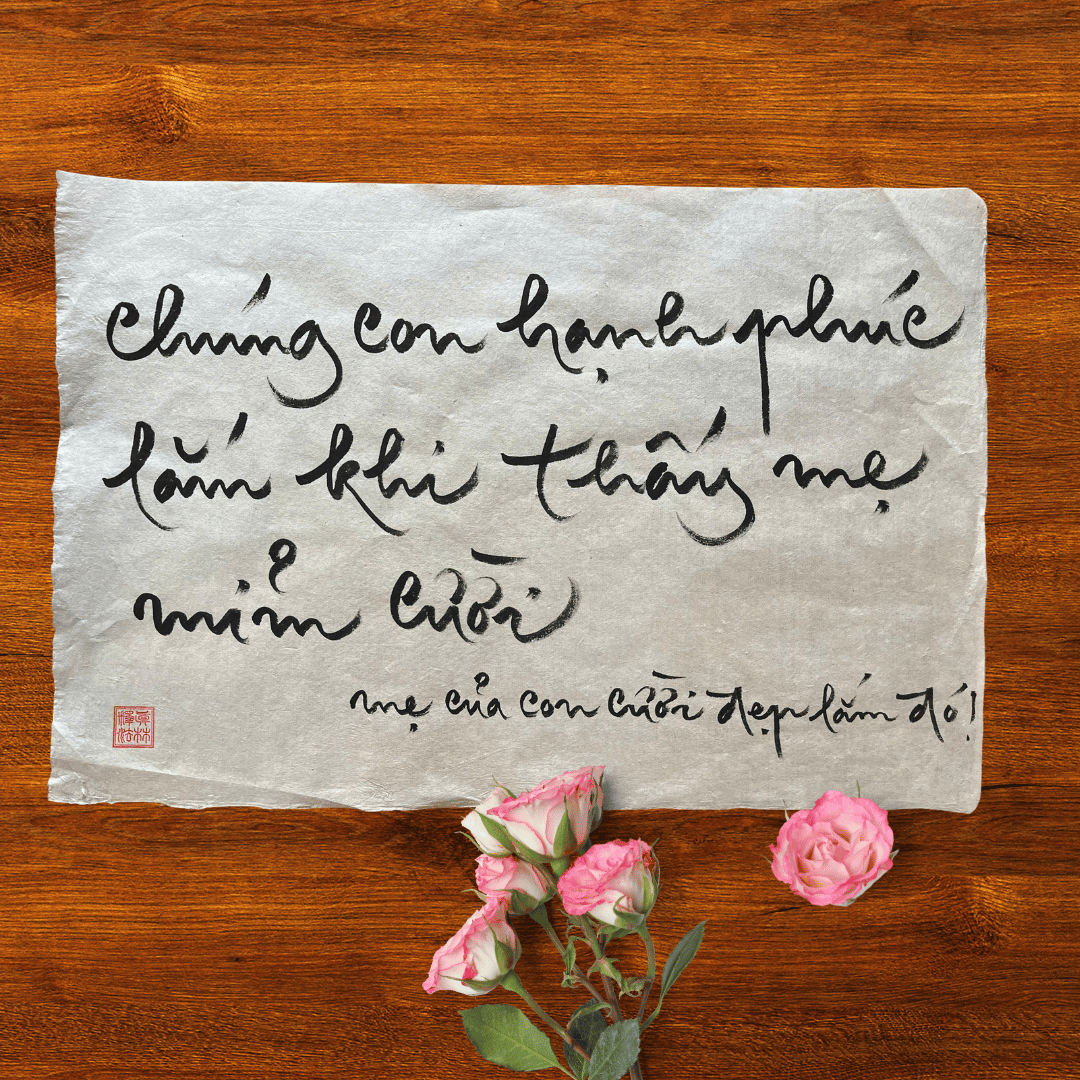 chúng con hạnh phúc
lắm khi thấy mẹ
mỉm cười
mẹ của con cười đẹp lắm đó!